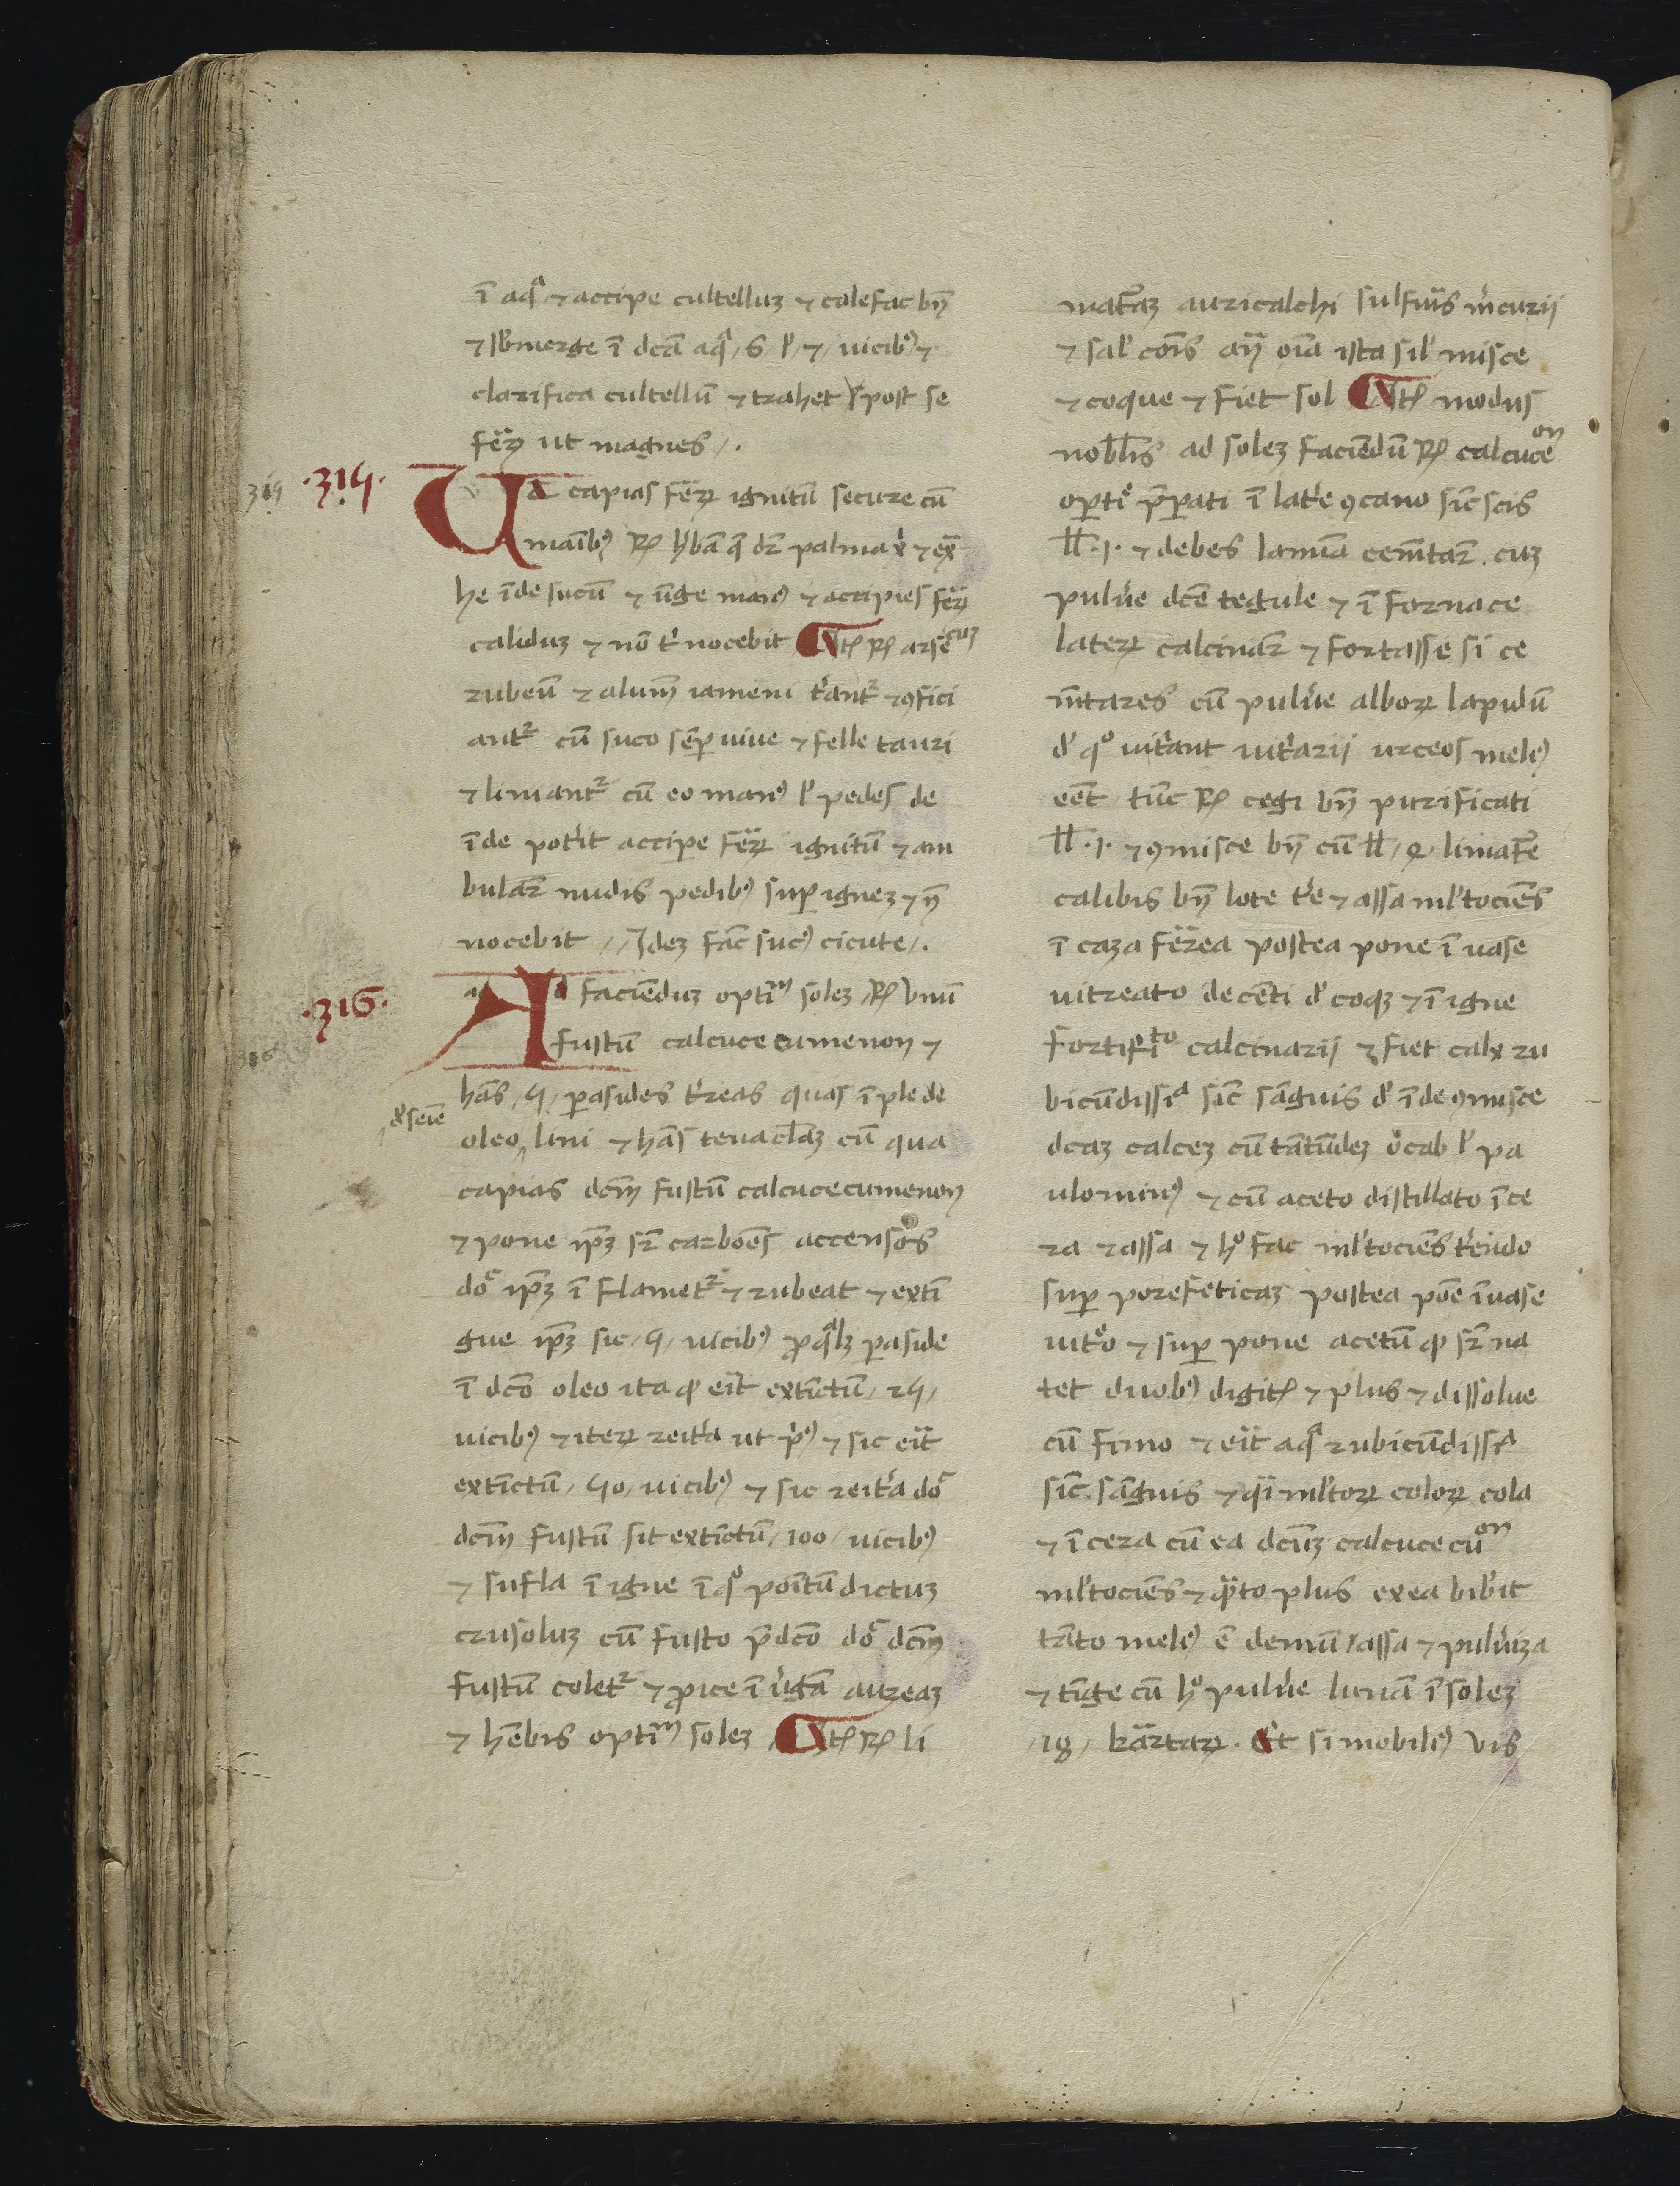 ī aqᵃ ⁊ accipe cultelluꝫ ⁊ calefac bn̄
⁊ sb̄merge ī dc̄a aqᵃ / 6 / l' / 7 / uicib⁹ ⁊
clarifica cultellū ⁊ trahet post se
ferꝝ ut magnes /.
.315.
Ut capias ferꝝ ignitū secure cū
manib⁹ ℞ h'bā q̄ dr̄ palma xp̄i ⁊ ext̄
he īde sucū ⁊ ūge man⁹ ⁊ accipies ferꝝ
caliduꝫ ⁊ nō t' nocebit ℞ arsēcuꝫ
rubeū ⁊ alum̄ iameni t'ant᷑ ⁊ ꝯfici
ant᷑ cū suco sēꝑ uiue ⁊ felle tauri
⁊ liniant᷑ cū eo man⁹ l' pedes de
īde pot'it acciꝑe ferꝝ ignitū ⁊ am
bular̄ nudis pedib⁹ suꝑ igneꝫ ⁊ n̄
nocebit // Jdeꝫ fac̄ suc⁹ cicute /.
.316.
Ad faciēduꝫ optīm soleꝫ ℞ unū
fustū calcucecumenon ⁊
hās / 4 / ꝑasides t'reas quas īple de
oleo lini ⁊ hās tenacl̄aꝫ cū qua
d' seīe
capias dcm̄ fustū calcucecumenon
⁊ pone ip̄ꝫ sr̄ carbōes accensos
dō ip̄ꝫ īflamet᷑ ⁊ rubeat ⁊ extī
gue ip̄ꝫ sic / 4 / uicib⁹ ꝓ qᵃlꝫ ꝑaside
ī dc̄o oleo ita ꝙ erit extīctū / 24 /
uicib⁹ ⁊ iterꝝ reit'a ut p'⁹ ⁊ sic erit
extīctū / 40 / uicib⁹ ⁊ sic reit'a dō
dcm̄ fustū sit extīctū / 100 / uicib⁹
⁊ sufla ī igne ī qᵒ poītū dictuꝫ
crusoluꝫ cū fusto p̄dc̄o dō dcm̄
fustū colet᷑ ⁊ ꝓice ī u'gā aureaꝫ
⁊ hēbis optīm soleꝫ ℞ li
mat̄aꝫ auricalchi sulfuris m'curij
⁊ sal' cōis an̄ oīa ista sil' misce
⁊ coque ⁊ fiet sol modus
nobīlis ad soleꝫ faciēdū ℞ calcuceᵒⁿ
oꝑtī p̄parati ī lat'e ꝯcano sic̄ scis
ll̄ .1. ⁊ debes lamīa cem̄tar̄ cuꝫ
pulu'e dc̄e tegule ⁊ ī fornace
laterꝝ calcinar̄ ⁊ fortasse si ce
m̄tares cū pulu'e alboꝝ lapidū
d' qᵒ uit'ant uit'arij urceos meli⁹
eēt tūc ℞ cegi bn̄ purificati
ll̄ .1. ⁊ ꝯmisce bn̄ cū ll̄ / 2 / limat̄e
calibis bn̄ lote t'e ⁊ assa ml'tociēs
ī caza ferrea postea pone ī uase
uitreato decēti d' coqꝫ ⁊ ī igne
fortissīᵗᵒ calcinarij ⁊ fiet calx ru
bicūdissiᵃ sic̄ sāguis d' īde ꝯmisce
dcaꝫ calceꝫ cū tātūdeꝫ ocab l' pa
ulomin⁹ ⁊ cū aceto distillato īce
ra ⁊ assa ⁊ hᵒ fac ml'tociēs t'endo
suꝑ porefeticaꝫ postea poe ī uase
uit'o ⁊ suꝑ pone acetū ꝙ sr̄ na
tet duob⁹ digit ⁊ plus ⁊ dissolue
cū fimo ⁊ erit aqᵃ rubicūdissiᵃ
sic̄ sāguis ⁊ qᵃi ml'toꝝ coloꝝ cola
⁊ īcera cū ea dcūꝫ calcucecūᵒⁿ
ml'tociēs ⁊ qᵃ̄to plus ex ea bib'it
tāto meli⁹ ē demū assa ⁊ pulu'iza
⁊ tīge cū hᵒ pulu'e lunā ī soleꝫ
/ 18 / karatꝝ. Et si mobili⁹ uis